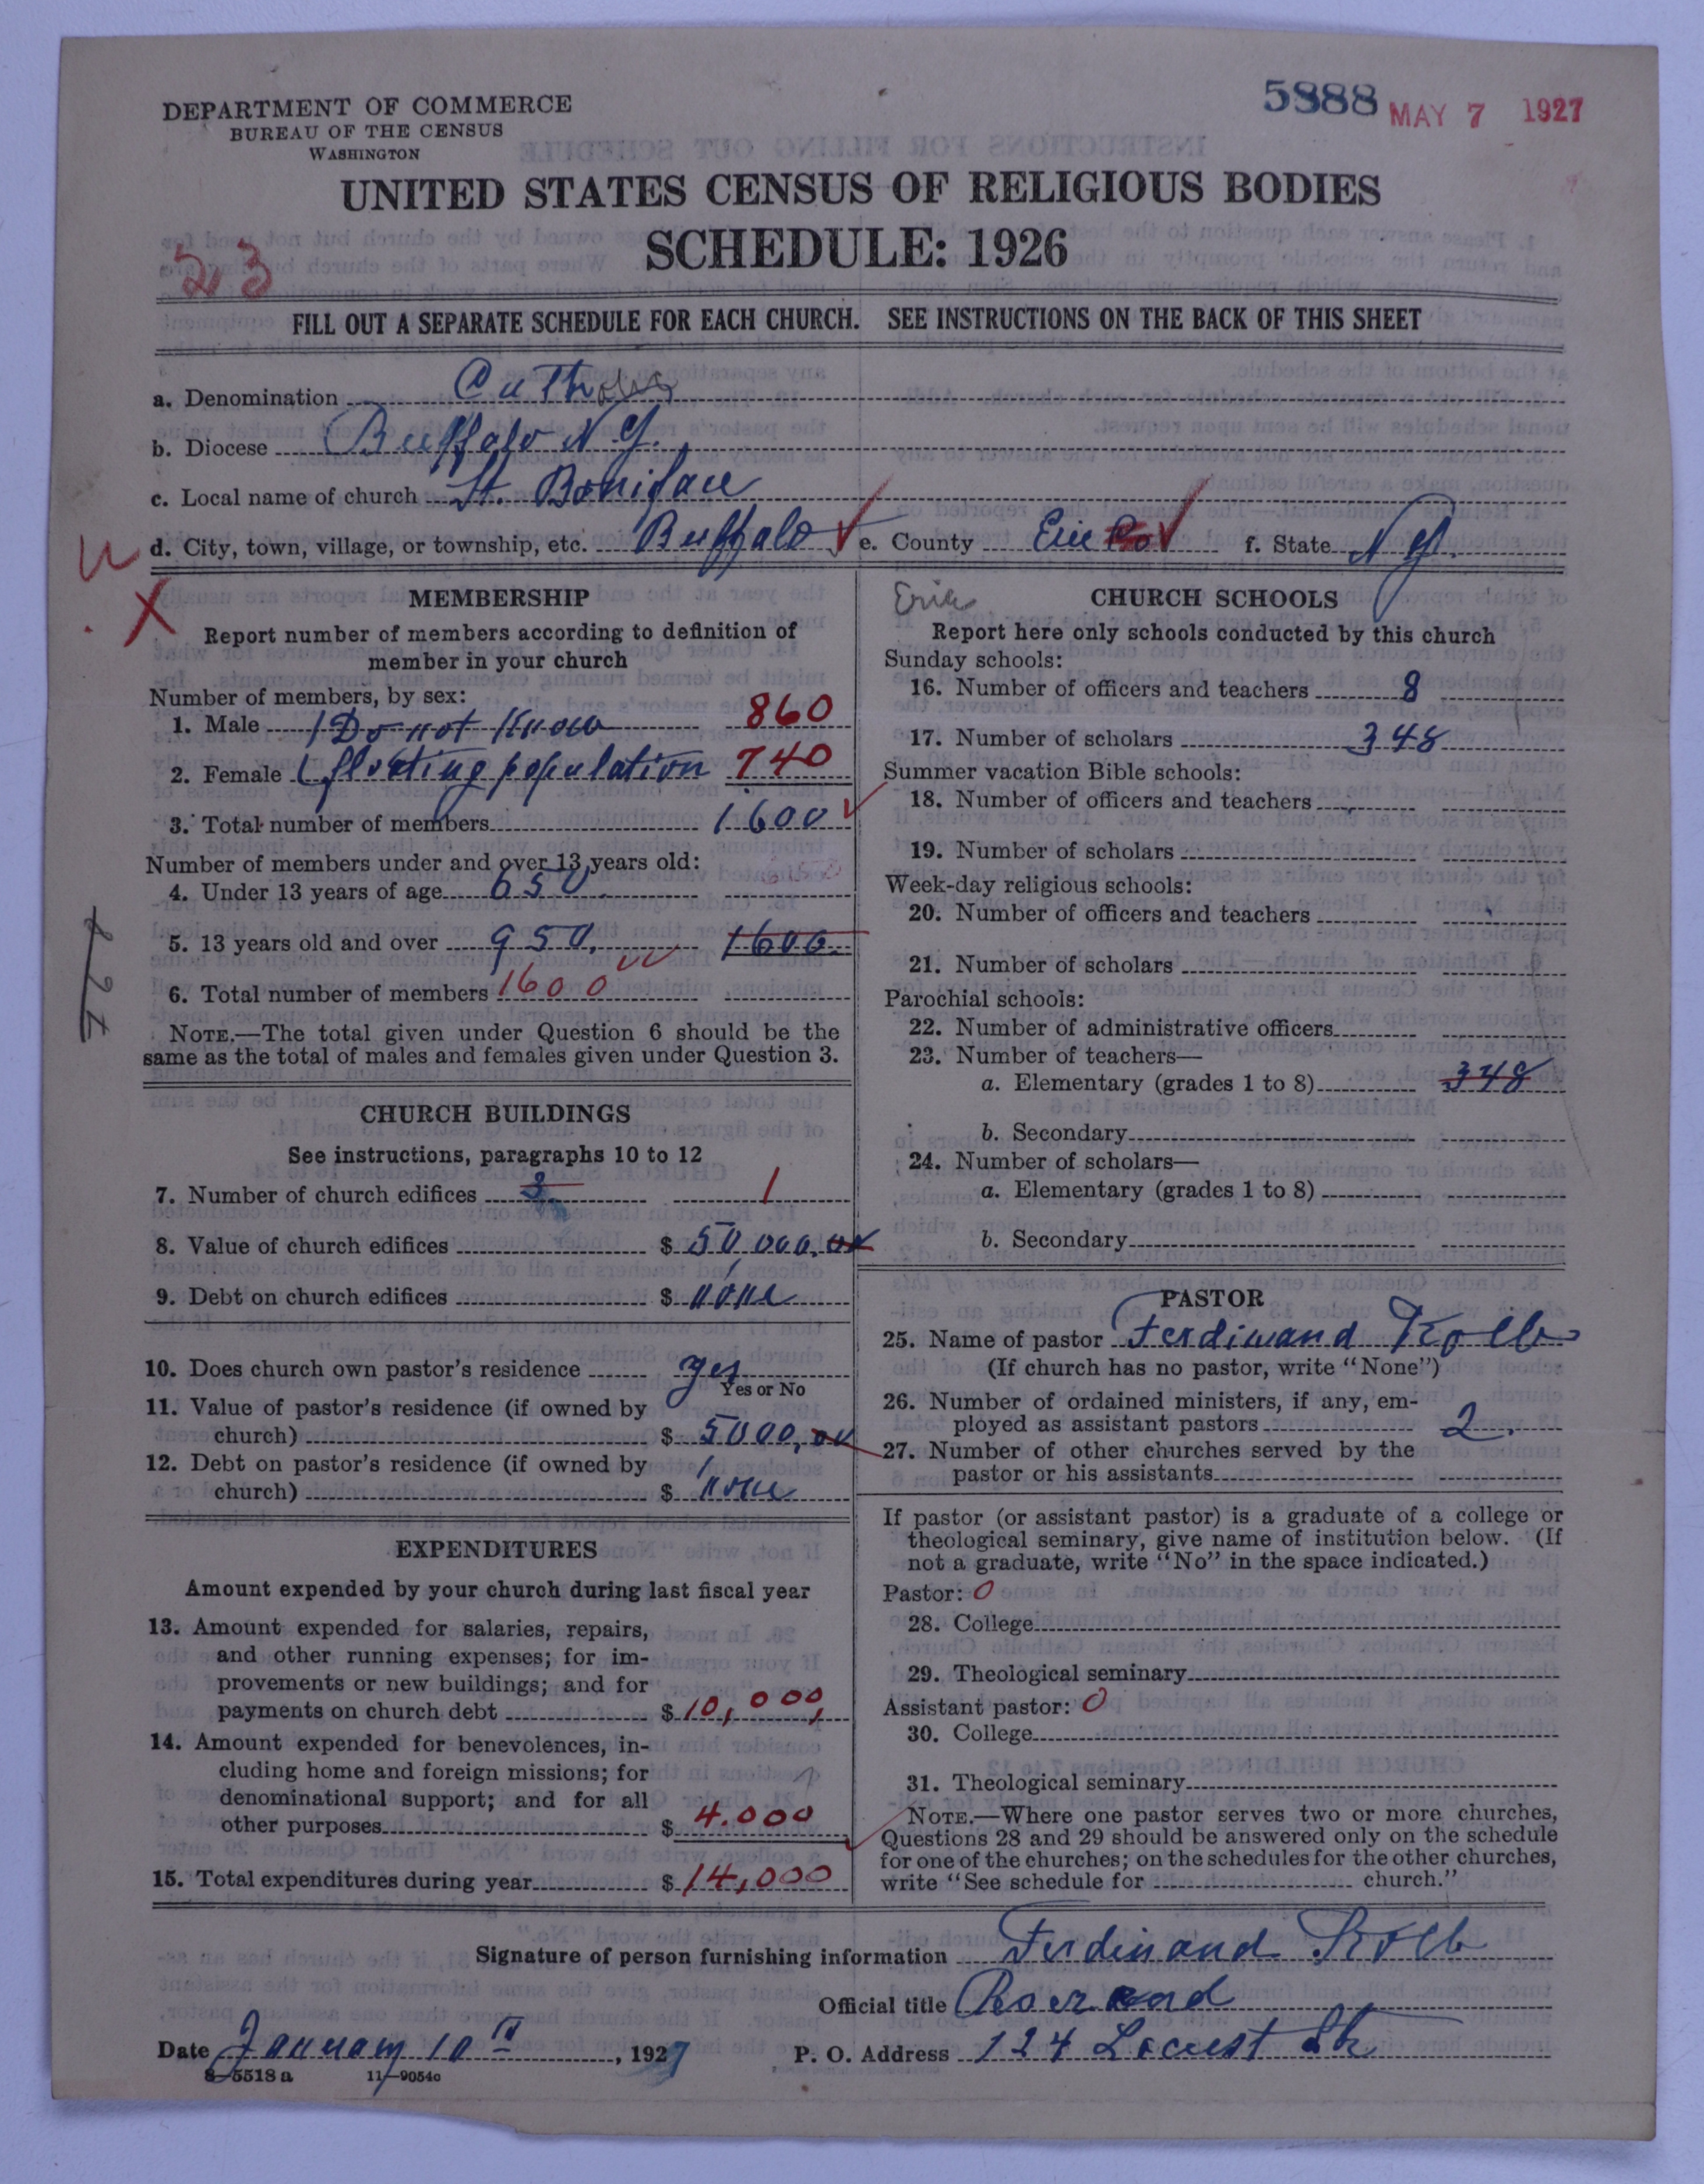 5888 MAY 7 1927
DEPARTMENT OF COMMERCE
BUREAU OF THE CENSUS
WASHINGTON
UNITED STATES CENSUS OF RELIGIOUS BODIES
SCHEDULE: 1926
23
FILL OUT A SEPARATE SCHEDULE FOR EACH CHURCH. SEE INSTRUCTIONS ON THE BACK OF THIS SHEET
a. Denomination Catholic
b. Diocese Buffalo N.Y.
c. Local name of church St. Boniface
d. City, town, village, or township, etc. Buffalo e. County Erie Co f. State N.Y.
MEMBERSHIP
Report number of members according to definition of
member in your church
Number of members, by sex:
1. Male Do not Know 860
2. Female floating population 740
3. Total number of members 1600
Number of members under and over 13 years old:
4. Under 13 years of age 650
5. 13 years old and over 950. 1600
6. Total number of members 1600
NOTE.—The total given under Question 6 should be the
same as the total of males and females given under Question 3.
CHURCH BUILDINGS
See instructions, paragraphs 10 to 12
7. Number of church edifices 1
8. Value of church edifices $ 50,000.00
9. Debt on church edifices $ none
10. Does church own pastor's residence yes
Yes or No
11. Value of pastor's residence (if owned by
church) $ 5000,00
12. Debt on pastor's residence (if owned by
church) $ none
EXPENDITURES
Amount expended by your church during last fiscal year
13. Amount expended for salaries, repairs,
and other running expenses; for im-
provements or new buildings; and for
payments on church debt $ 10,000,
14. Amount expended for benevolences, in-
cluding home and foreign missions; for
denominational support; and for all
other purposes $ 4.000
15. Total expenditures during year $ 14,000
Erie
CHURCH SCHOOLS
Report here only schools conducted by this church
Sunday schools:
16. Number of officers and teachers 8
17. Number of scholars 348
Summer vacation Bible schools:
18. Number of officers and teachers
19. Number of scholars
Week-day religious schools:
20. Number of officers and teachers
21. Number of scholars
Parochial schools:
22. Number of administrative officers
23. Number of teachers—
a. Elementary (grades 1 to 8) 348
b. Secondary
24. Number of scholars—
a. Elementary (grades 1 to 8)
b. Secondary
PASTOR
25. Name of pastor Ferdinand Kolb
(If church has no pastor, write "None")
26. Number of ordained ministers, if any, em-
ployed as assistant pastors 2.
27. Number of other churches served by the
pastor or his assistants
If pastor (or assistant pastor) is a graduate of a college or
theological seminary, give name of institution below. (If
not a graduate, write "No" in the space indicated.)
Pastor: 0
28. College
29. Theological seminary
Assistant pastor: 0
30. College
31. Theological seminary
NOTE.—Where one pastor serves two or more churches,
Questions 28 and 29 should be answered only on the schedule
for one of the churches; on the schedules for the other churches,
write "See schedule for church."
Signature of person furnishing information Ferdinand Kolb
Official title
Date January 10th, 1927 P. O. Address 124 Locust St
8—5518 a 11—9054c